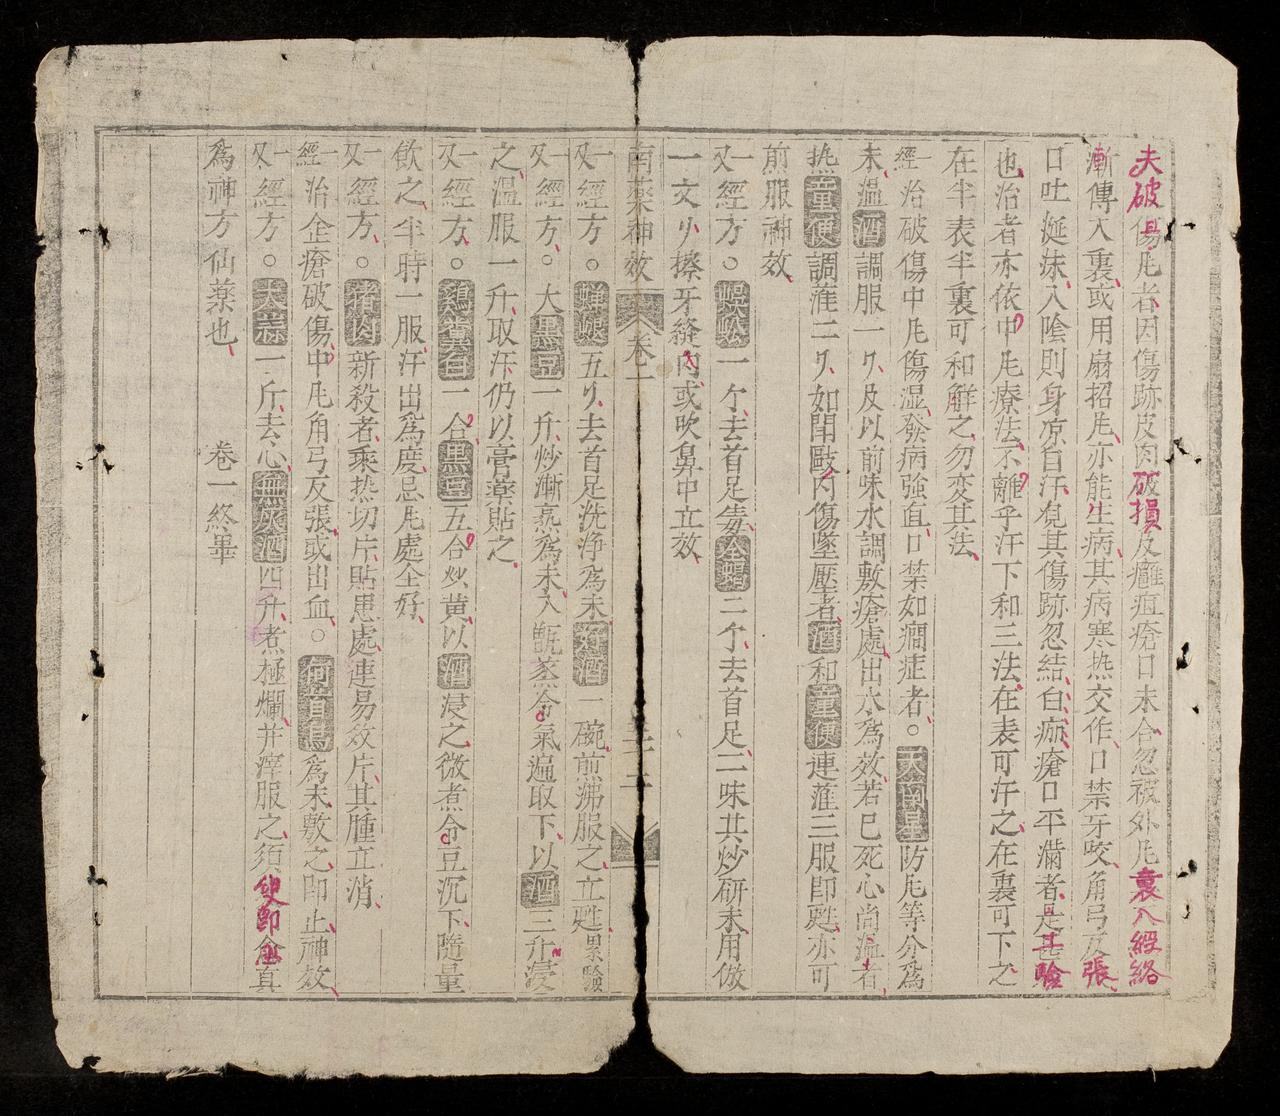 夫破傷风者因傷跡皮肉破損及癰疽瘡口未合忽被外风裏入經絡
漸傳入裏或用扇招风亦能生病其病寒热交作口禁牙咬角弓反張
口吐涎沫入陰則身凉自汗見其傷跡忽結白痂瘡口平滿者是其驗
也治者亦依中风療法不離乎汗下和三法在表可汗之在裏可下之
在半表半裏可和解之勿変其法
一經治破傷中风傷湿發病強直口禁如癇症者。天南星防风等分爲
末温酒調服一刂及以前味水調敷瘡處出水爲效若已死心尚温者
热童便調薤二刂如閗毆内傷墜壓者酒和童便連薤三服即甦亦可
煎服神效
一又經方。蜈蚣一个去首足毒全蝎二个去首足二味共炒研末用倣
一文刂擦牙縫内或吹鼻中立效
南薬神效 卷一 三十二
一又經方。蝉蜕五刂去首足洗浄爲末好酒一碗煎沸服之立甦累驗
一又經方。大黒豆一升炒漸熟爲末入甑蒸令氣遍取下以酒三升浸
之温服一升取汗仍以膏薬貼之
一又經方。鷄糞白一合黒豆五合炒黄以酒浸之微煮令豆沉下隨量
飲之半時一服汗出爲度忌风處全好
一又經方。猪肉新殺者乘热切片貼患處連易效片其腫立消
一經治金瘡破傷中风角弓反張或出血。何首烏爲末敷之即止神效
一又經方。大蒜一斤去心無灰酒四升煮極爛并滓服之須臾即愈真
爲神方仙薬也 卷一終畢